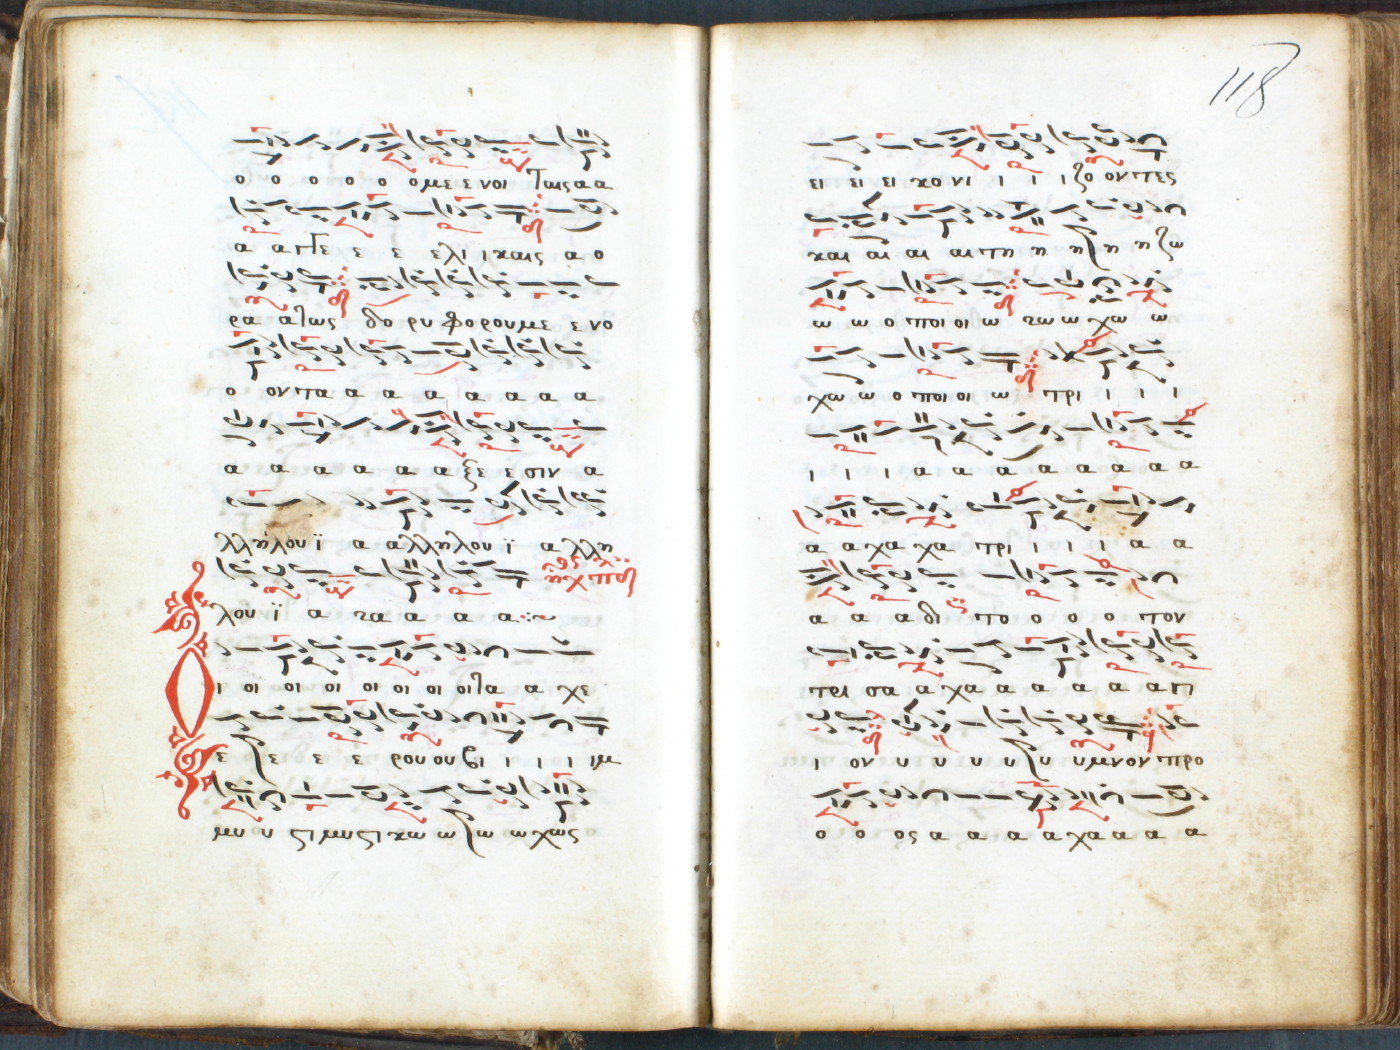 ο ο ο ο ο ομε ε νοι Ταις α α
α α πε ε ε ελι ι καις α ο
ρα α τως δο ρυ φο ρου με ε νο
ο ον πα α α α α α α α
α α α α α α α ξε ε σιν α
λληλου ϊ α αλληλου ϊ αλλη
λου ϊ α να α α α
Οι οι οι οι οι οι οι οι τα α χε
ε ε ε ε ρου ου βι ι ι ι ιμ
μυ υ στι μυ στι κω ω ω ω χως
118
ει ει ει κο νι ι ι ι ζο ον τες
και αι αι αι τη η η η η ζω
ω ω ο ποι οι ω νω ω χω ω
χω ω ο ποι οι ω τρι ι ι ι
ι ι ι α α α α α α α α
α α χα χα τρι ι ι ι α α
α α α δι το ο ο ο τον
τρι σα α χα α α α α α
ι ον υ υ υ υ υ υ υμνον προ
ο ο ος α α α α χα α α α